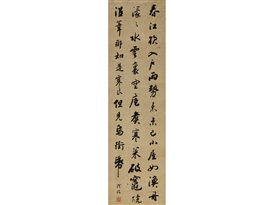 春江欲入戶雨勢來未已小屋如漁舟
濛々水雲裏空庖煮寒菜破竈燒
溼葦那知是寒食但見烏銜帋